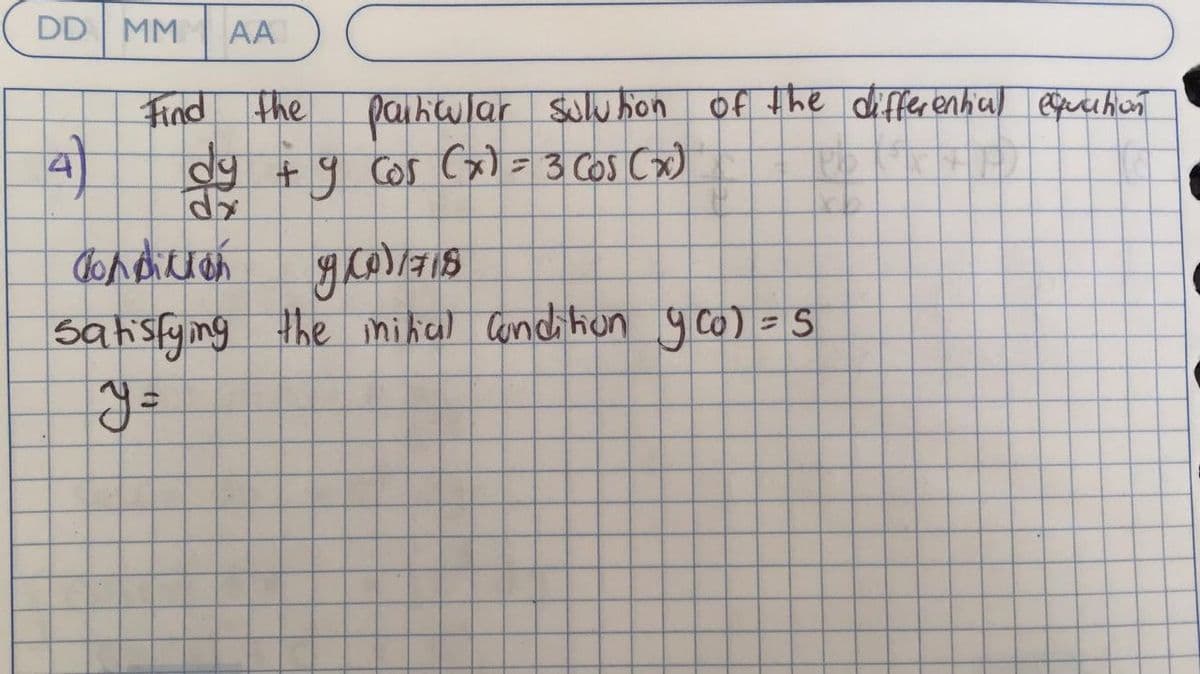 DD MM AA
Find the particular solution of the differential equation
4) dy/dx + y cos (x) = 3 cos (x)
Condición
satisfying the initial condition y(0) = 5
y =